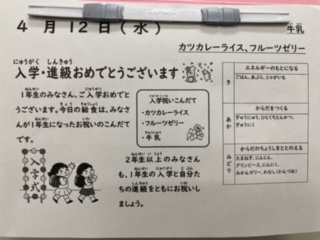 4 月 12日(水)
牛乳
カツカレーライス、フルーツゼリー
入学・進級おめでとうございます
にゅうがく しんきゅう
1年生のみなさん、ご入学おめでとうございます。今日の給食は、みなさんが1年生になったお祝いのこんだてです。
入学祝いこんだて
・カツカレーライス
・フルーツゼリー
・牛乳
2年生以上のみなさんも、1年生の入学と自分たちの進級をともにお祝いしましょう。
入学式
き
エネルギーのもとになる
ごはん、あぶら、じゃがいも
あか
からだをつくる
ぎゅうにゅう、ひとくちとんかつ、ぎゅうにく
みどり
からだのちょうしをととのえる
たまねぎ、にんじん、
グリンピース、にんにく、